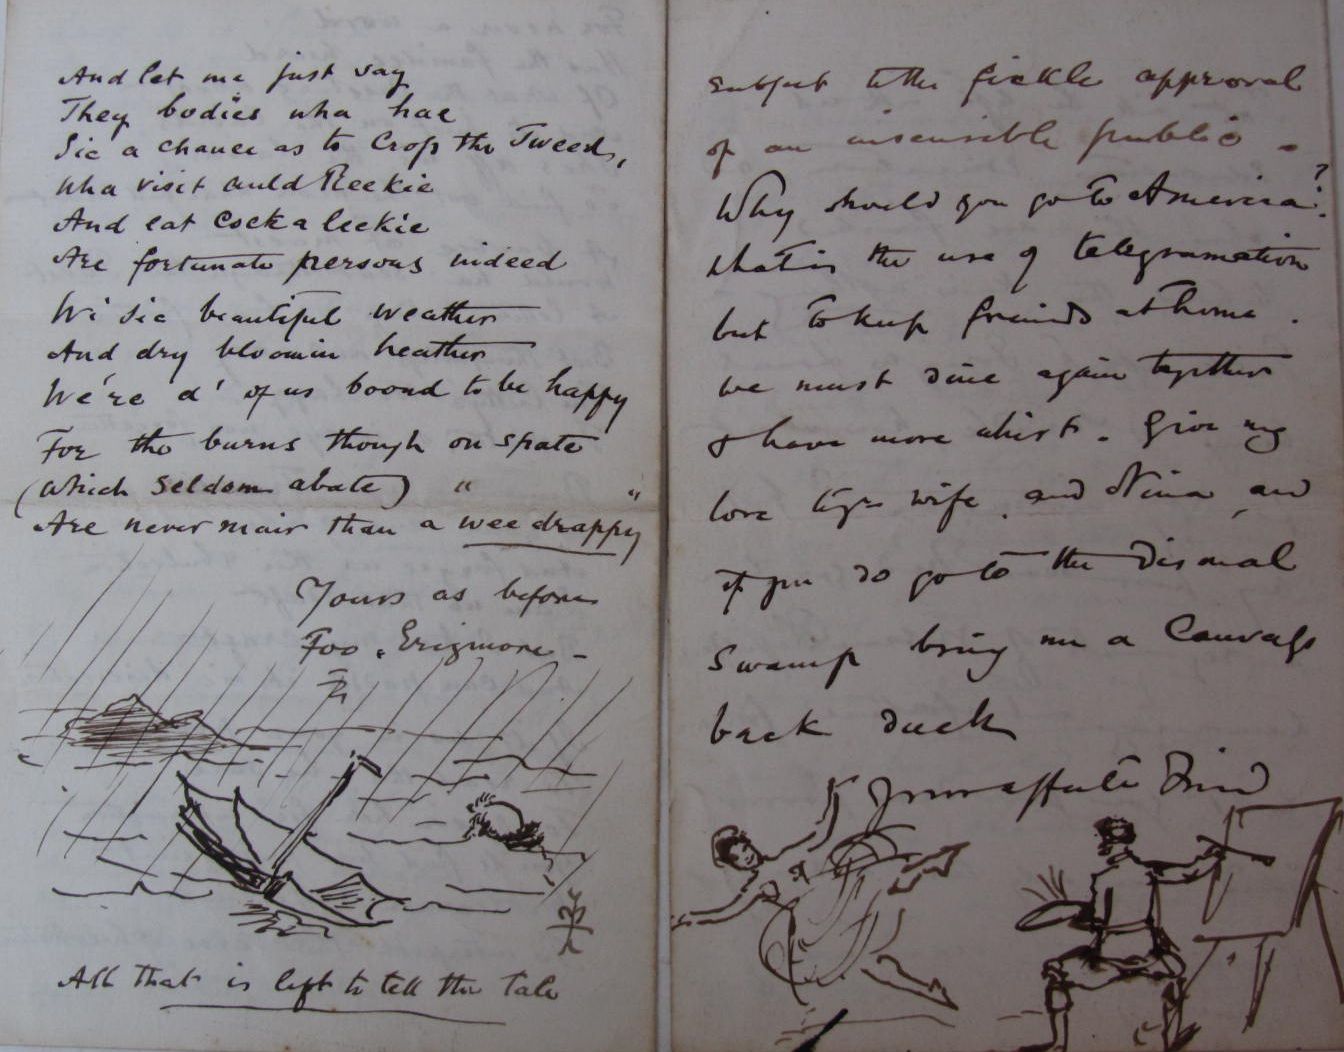 And let me just say
They bodies wha hae
Sic a chance as to Cross the Tweed,
Wha visit auld Reekie
And eat Cock a leekie
Are fortunate persons indeed
Wi' sic beautiful weather
And dry bloomin heather
We're a' of us boond to be happy
For the burns though on spate
(Which seldom abate) " "
Are never mair than a wee drappy
Yours as before
Foo.
All that is left to tell the Tale
subject to the fickle approval
of an insensible public.
Why should you go to America?
What is the use of telegramation
but to keep friends at home.
we must dine again together
& have more whist. Give my
love to yr wife and Nina, and
if you do go to the Dismal
Swamp bring me a Canvass
back duck
Your affecte Friend